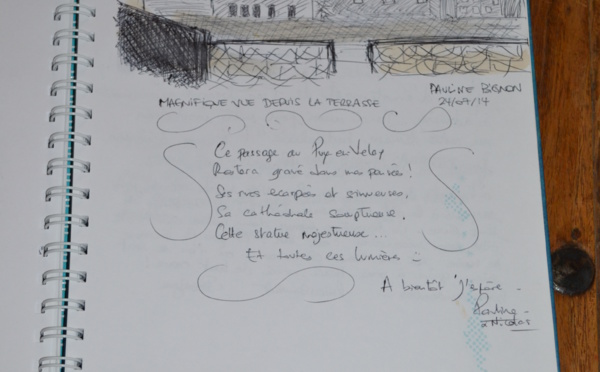 PAULINE BIGNON
24/09/14
MAGNIFIQUE VUE DEPUIS LA TERRASSE
Ce passage au Puy en Velay
Restera gravé dans mes pensées !
Ses rues escarpées et sinueuses,
Sa cathédrale somptueuse,
Cette statue majestueuse...
Et toutes ces lumières :
A bientôt j'espère
Pauline
& Nicolas